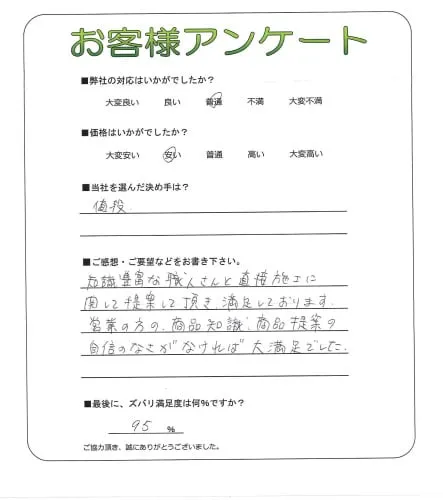 お客様アンケート
■弊社の対応はいかがでしたか？
大変良い 良い 普通 不満 大変不満
■価格はいかがでしたか？
大変安い 安い 普通 高い 大変高い
■当社を選んだ決め手は？
値段
■ご感想・ご要望などをお書き下さい。
知識豊富な職人さんと直接施工に
関して提案して頂き、満足しております。
営業の方の、商品知識、商品提案の
自信のなさがなければ大満足でした。
■最後に、ズバリ満足度は何%ですか？
95 %
ご協力頂き、誠にありがとうございました。